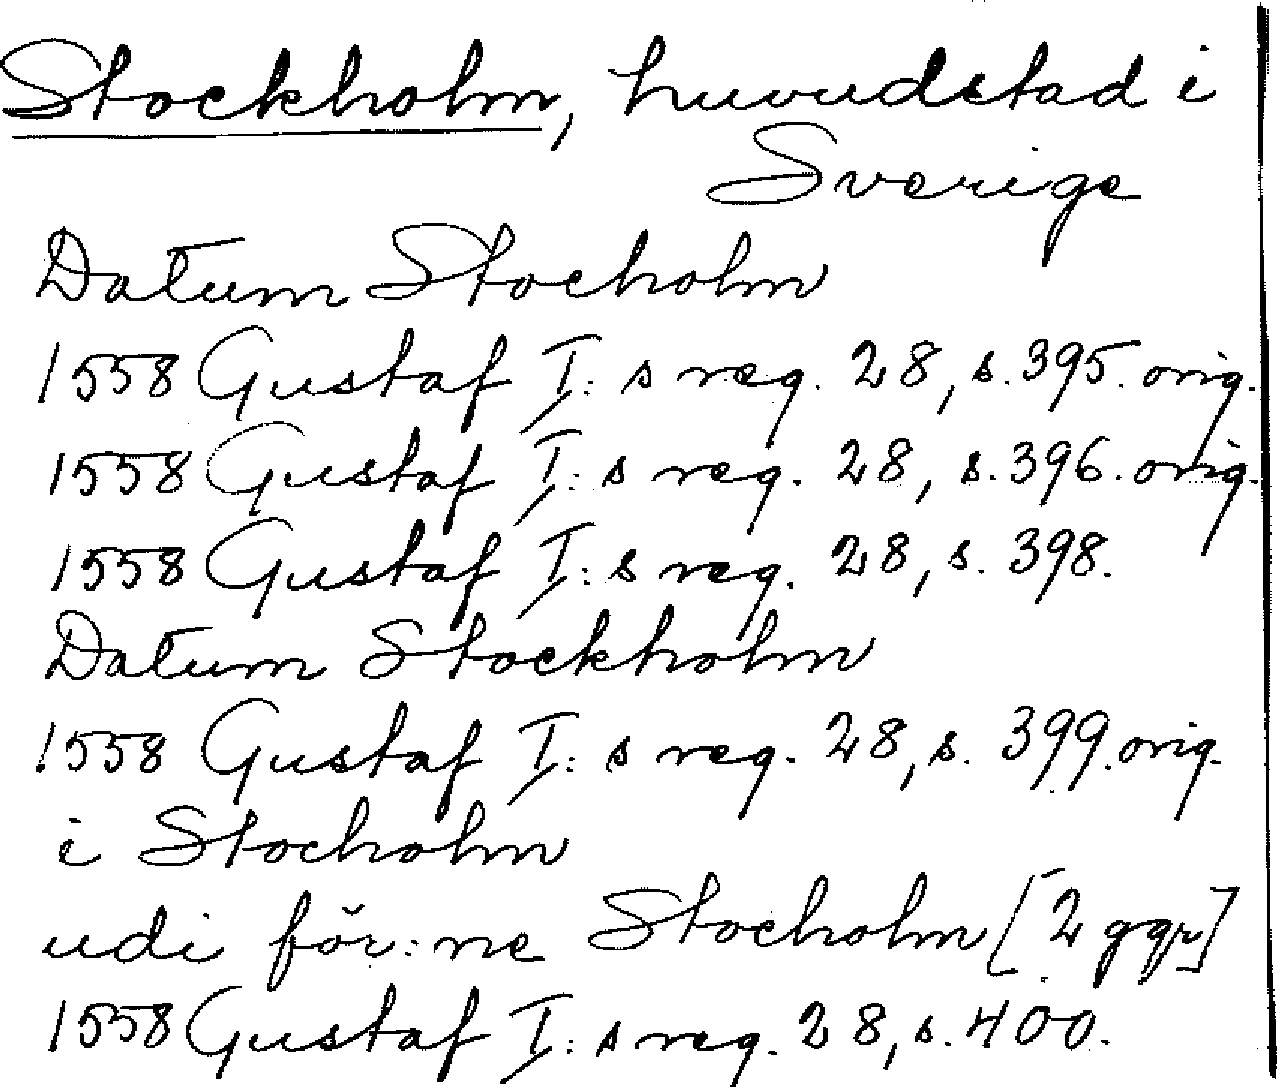 Stockholm, huvudstad i
Sverige
Datum Stocholm
1558 Gustaf I: s reg. 28, s. 395. orig.
1558 Gustaf I: s reg. 28, s. 396. orig.
1558 Gustaf I: s reg. 28, s. 398.
Datum Stockholm
1558 Gustaf I: s reg. 28, s. 399. orig.
i Stocholm
udi för:ne Stocholm [2 ggr]
1558 Gustaf I: s reg. 28, s. 400.